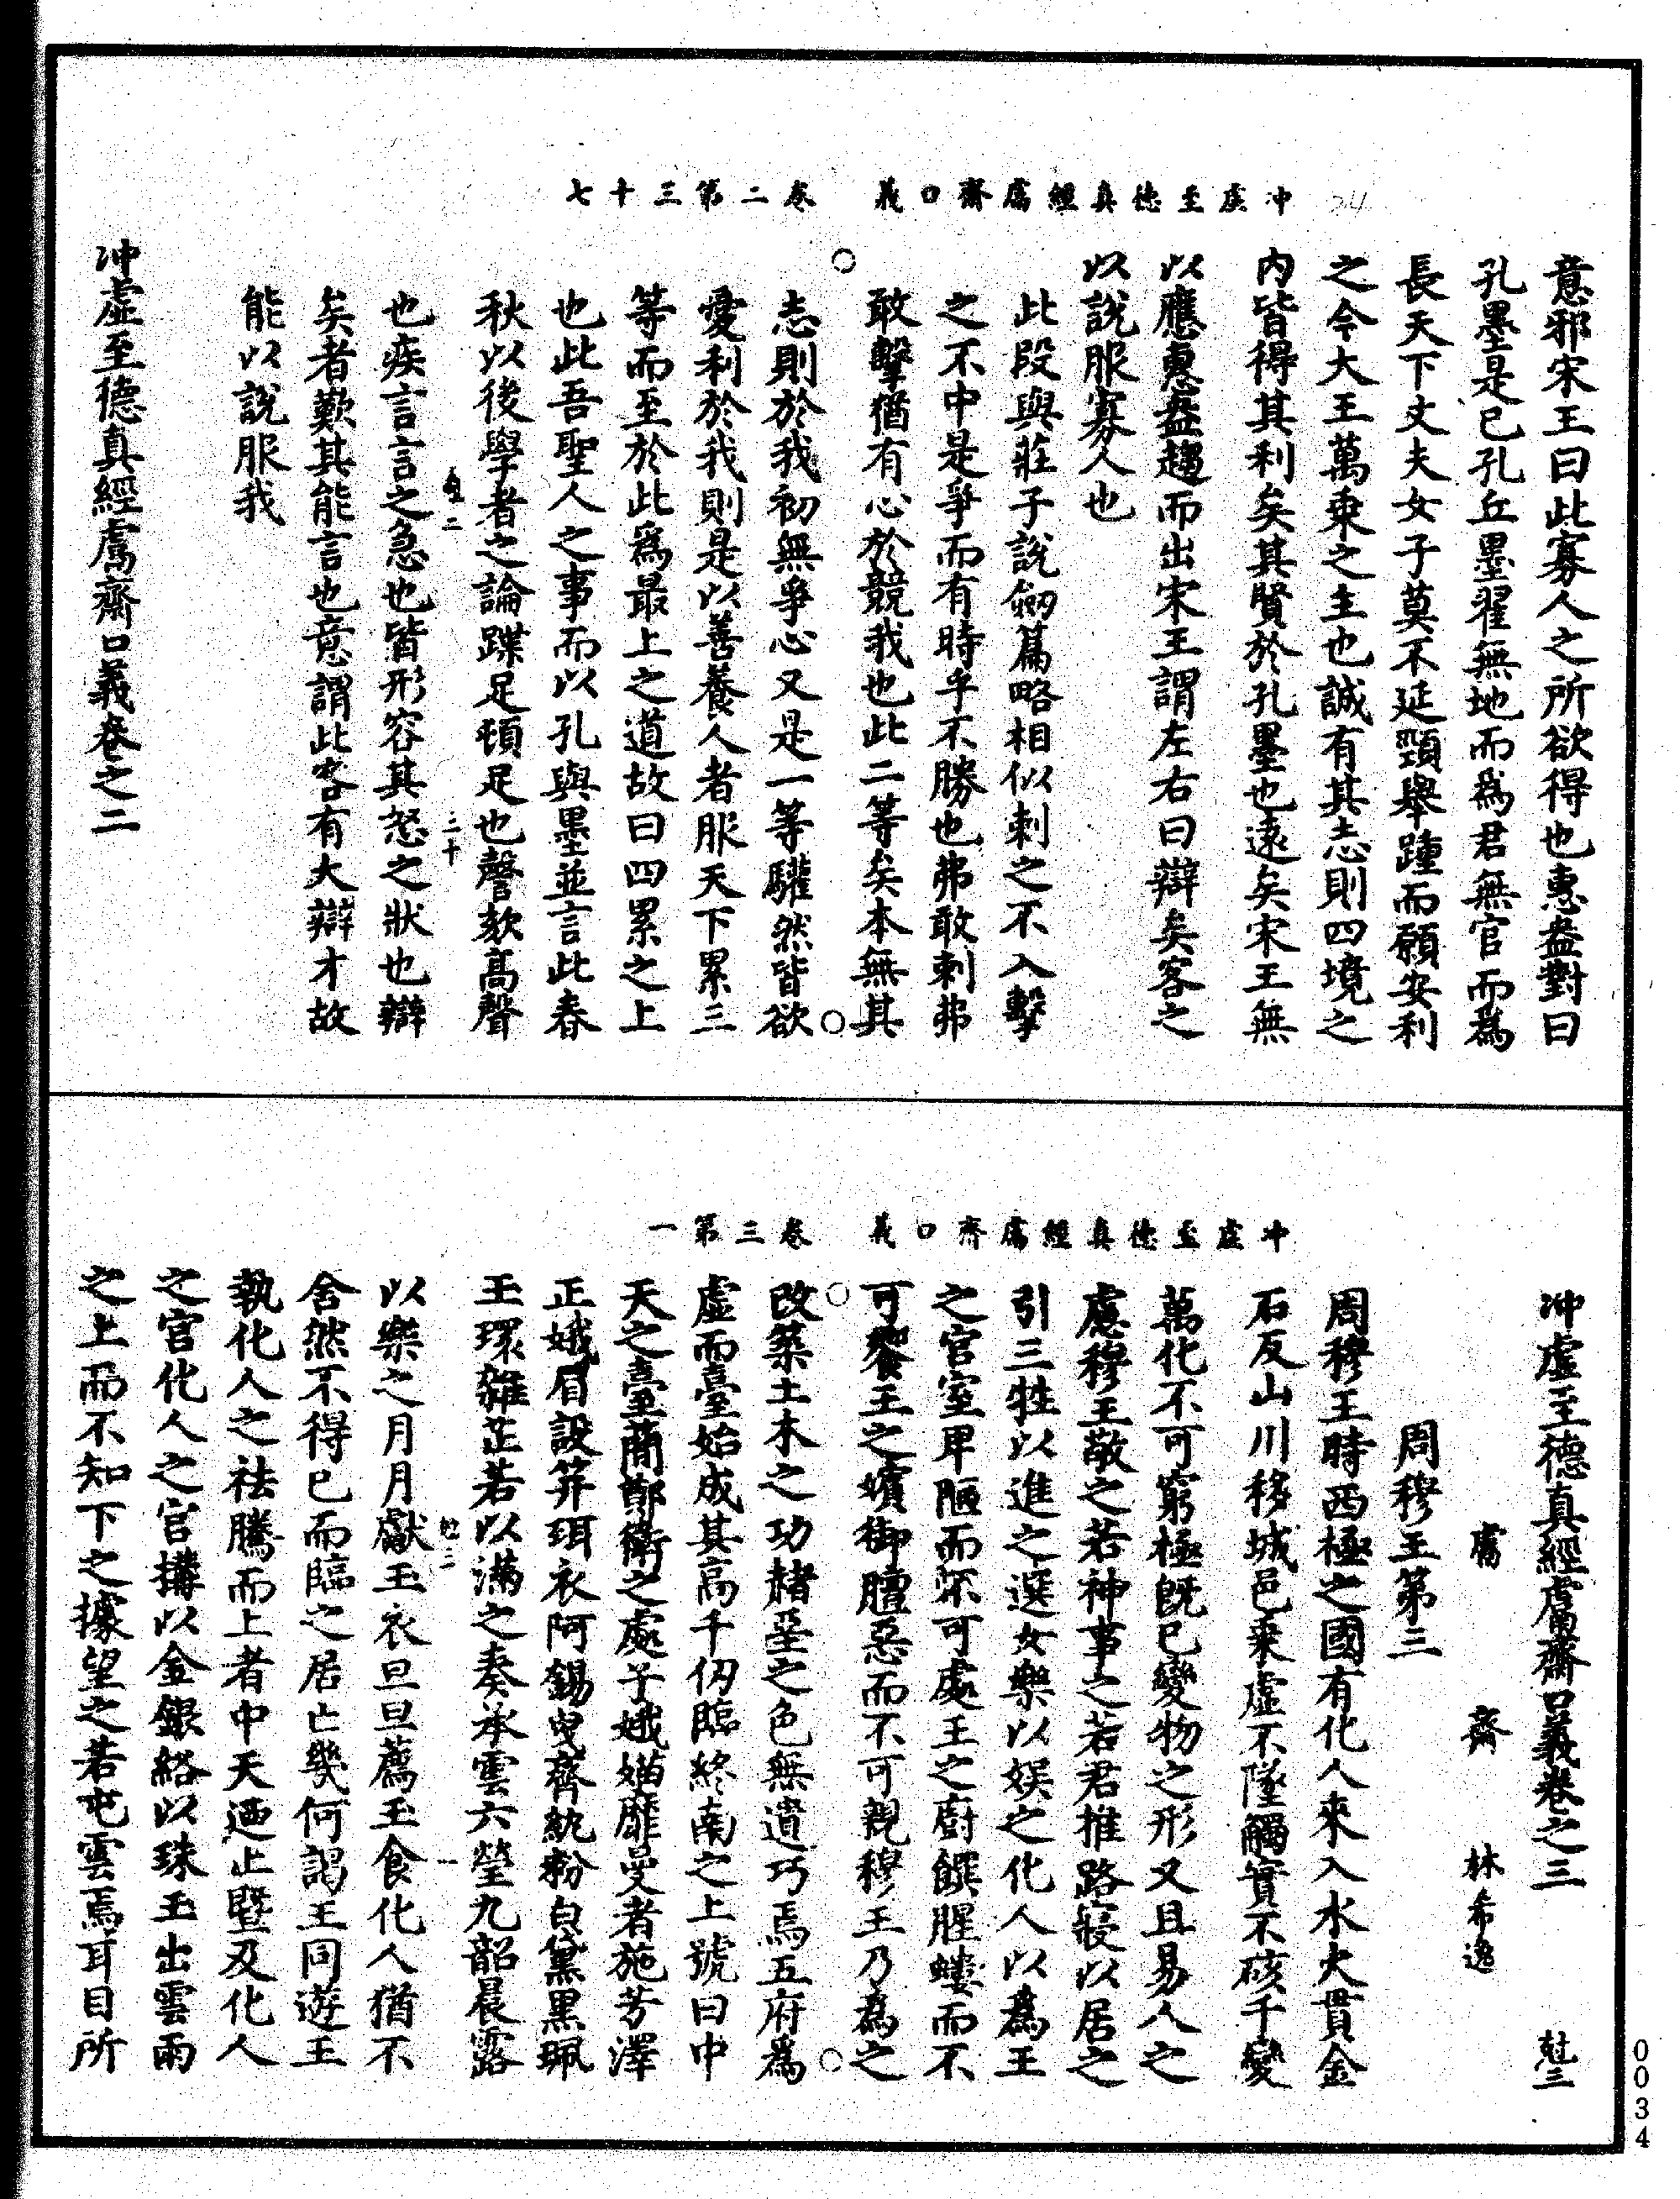 冲虛至德真經鬳齋口義　卷二第三十七
意邪宋王曰此寡人之所欲得也惠盎對曰
孔墨是已孔丘墨翟無地而爲君無官而爲
長天下丈夫女子莫不延頸舉踵而願安利
之今大王萬乘之主也誠有其志則四境之
內皆得其利矣其賢於孔墨也遠矣宋王無
以應惠盎趨而出宋王謂左右曰辯矣客之
以說服寡人也
此段與莊子說劒篇略相似刺之不入擊
之不中是爭而有時乎不勝也弗敢刺弗
敢擊猶有心於競我也此二等矣本無其
志則於我初無爭心又是一等驩然皆欲
愛利於我則是以善養人者服天下累三
等而至於此爲最上之道故曰四累之上
也此吾聖人之事而以孔與墨並言此春
秋以後學者之論蹀足頓足也謦欬高聲
也疾言言之急也皆形容其怒之狀也辯
矣者歎其能言也意謂此客有大辯才故
能以說服我
冲虛至德真經鬳齋口義卷之二
冲虛至德真經鬳齋口義　卷三第一
冲虛至德真經鬳齋口義卷之三　　魽三
鬳　齋　林希逸
周穆王第三
周穆王時西極之國有化人來入水火貫金
石反山川移城邑乘虛不墜觸實不硋千變
萬化不可窮極旣已變物之形又且易人之
慮穆王敬之若神事之若君推路寢以居之
引三牲以進之選女樂以娛之化人以爲王
之宮室卑陋而不可處王之廚饌腥螻而不
可饗王之嬪御膻惡而不可親穆王乃爲之
改築土木之功赭堊之色無遺巧焉五府爲
虛而臺始成其高千仞臨終南之上號曰中
天之臺簡鄭衛之處子娥媌靡曼者施芳澤
正娥眉設笄珥衣阿錫曳齊紈粉白黛黑珮
玉環雜芷若以滿之奏承雲六瑩九韶晨露
以樂之月月獻玉衣旦旦薦玉食化人猶不
舍然不得已而臨之居亡幾何謁王同遊王
執化人之袪騰而上者中天迺止暨及化人
之宮化人之宮搆以金銀絡以珠玉出雲雨
之上而不知下之據望之若屯雲焉耳目所
0034